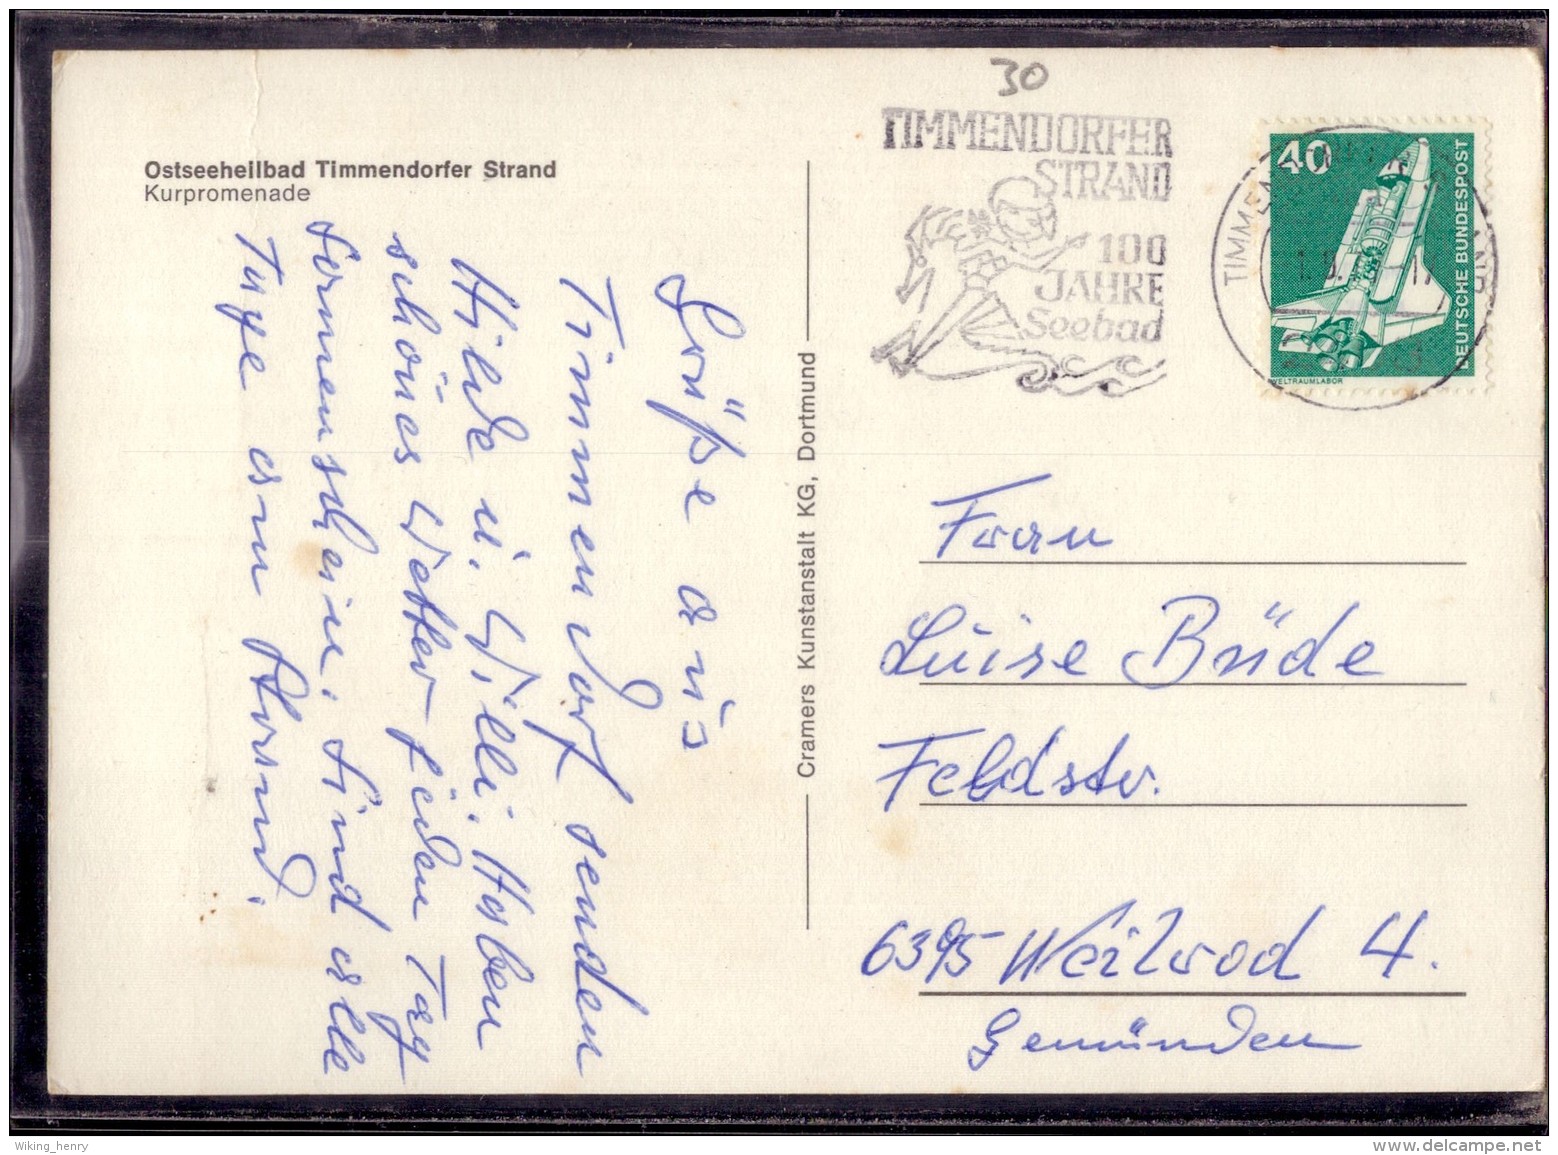 30
TIMMENDORFER
STRAND
100
JAHRE
Seebad
40
DEUTSCHE BUNDESPOST
WELTRAUMLABOR
TIMMEN
Ostseeheilbad Timmendorfer Strand
Kurpromenade
Grüße aus
Timmendorf senden
Hilde u. Willi. Haben
schönes Wetter jeden Tag
Sonnenschein. Sind alle
Tage am Strand.
Cramers Kunstanstalt KG, Dortmund
Frau
Luise Büde
Feldstr.
6395 Weilrod 4.
Gemünden
Wiking_henry
delcampe.net